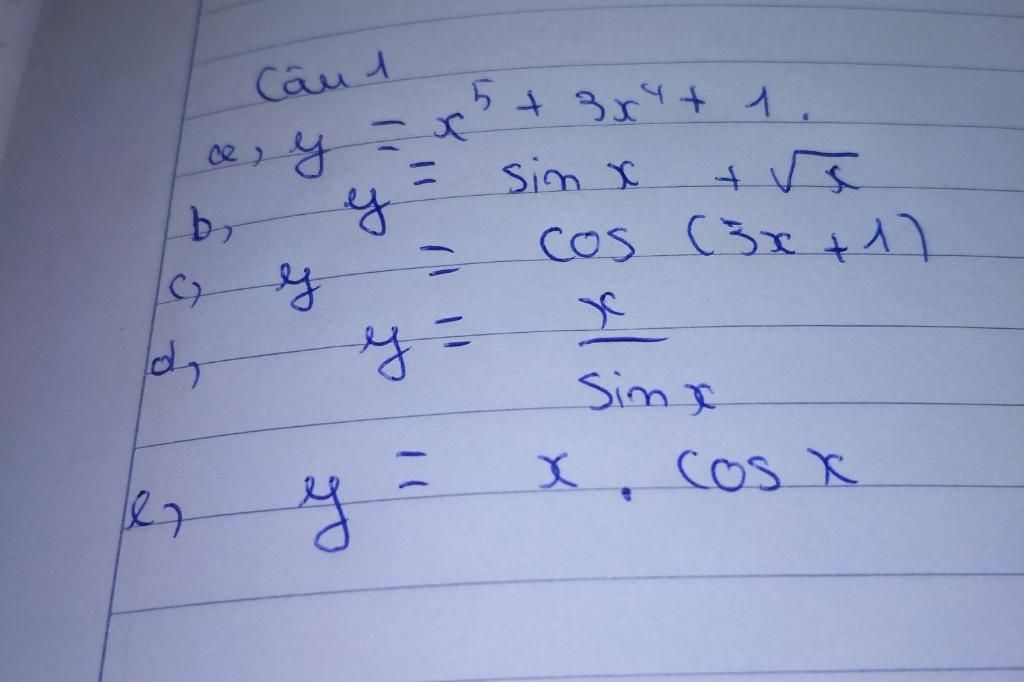 Câu 1
a, y = x⁵ + 3x⁴ + 1.
b, y = sin x + √x
c, y = cos (3x + 1)
d, y = x / sin x
e, y = x . cos x